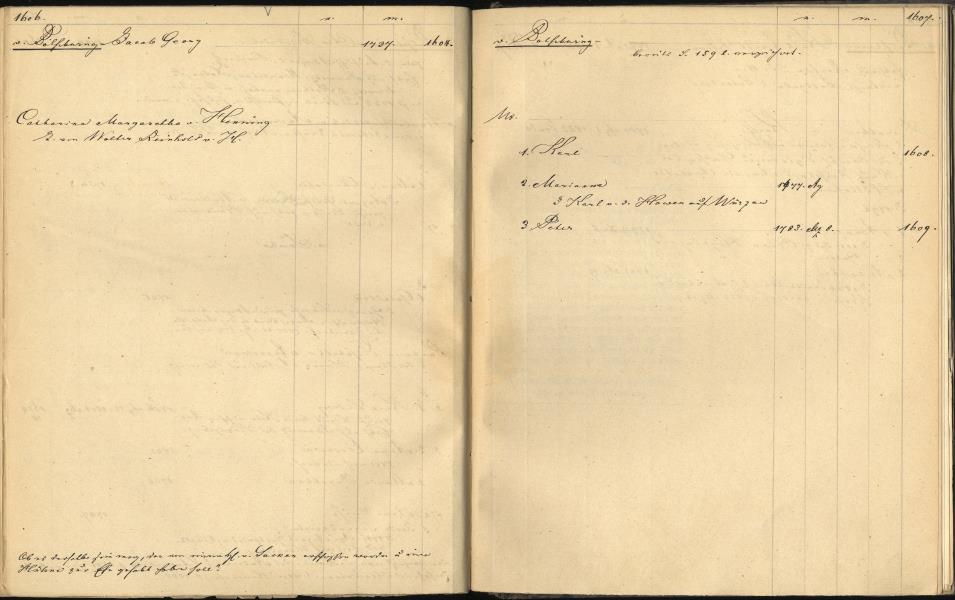 1606.
n. m.
v. Bolschwing Jacob Georg 1727. 1604.
Catharina Margaretha v. Henning
T. von Walter Reinhold v. H.
Ob es derselbe sein mag, der von einem v. Sacken erschossen worden u eine
zur Ehe gehabt haben soll?
1607.
n. m.
v. Bolschwing
bereits S. 159 verzeichnet.
Ux.
1. Karl 1608.
2. Marianne 1777. Ag
Karl v. d. Howen auf Würzau
3 Peter 1783. 8. 1609.